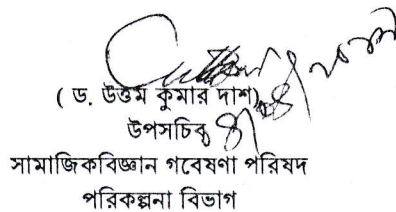 ( ড. উত্তম কুমার দাশ)
উপসচিব
সামাজিকবিজ্ঞান গবেষণা পরিষদ
পরিকল্পনা বিভাগ